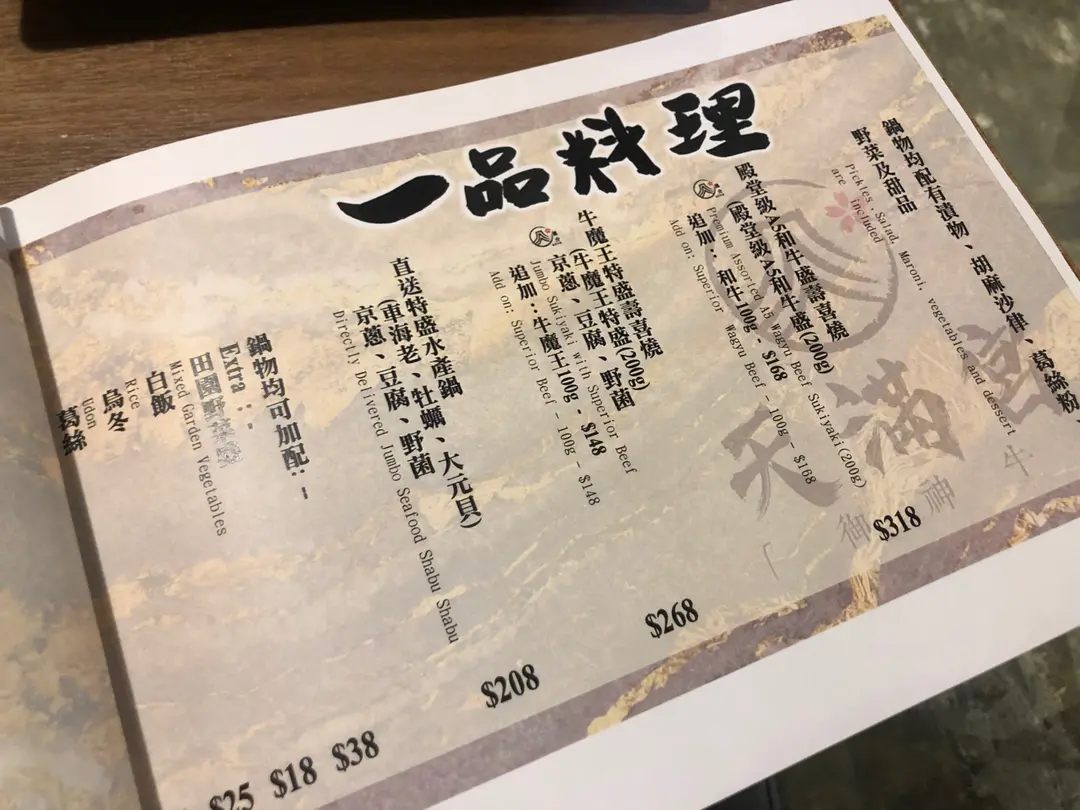 一品料理
鍋物均配有漬物、胡麻沙律、葛絲粉、
野菜及甜品
Pickles, Salad, Maroni, vegetables and dessert
are included
殿堂級A5和牛盛壽喜燒
(殿堂級A5和牛盛(200g)
Premium Assorted A5 Wagyu Beef Sukiyaki(200g)
$318
追加：和牛100g - $168
Add on: Superior Wagyu Beef - 100g - $168
牛魔王特盛壽喜燒
(牛魔王特盛(200g)
京蔥、豆腐、野菌
Jumbo Sukiyaki with Superior Beef
$268
追加：牛魔王100g - $148
Add on: Superior Beef - 100g - $148
直送特盛水產鍋
(車海老、牡蠣、大元貝)
京蔥、豆腐、野菌
Directly Delivered Jumbo Seafood Shabu Shabu
$208
鍋物均可加配：-
Extra：-
田園野菜盤
Mixed Garden Vegetables
$38
白飯
Rice
$18
烏冬
Udon
$25
葛絲
天滿宮
「御神牛